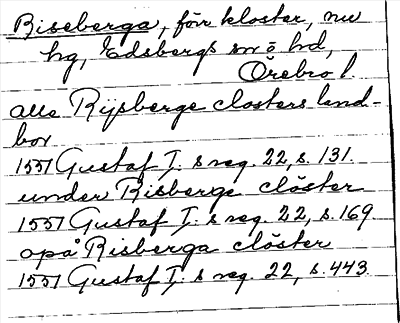 Riseberga, förr kloster, nu
hg, Edsbergs sn o hd,
Örebro l.
alla Rijsberge closters land-
bor
1551 Gustaf I:s reg. 22, s. 131.
under Risberge clöster
1551 Gustaf I:s reg. 22, s. 169
opå Risberga clöster
1551 Gustaf I:s reg. 22, s. 443.